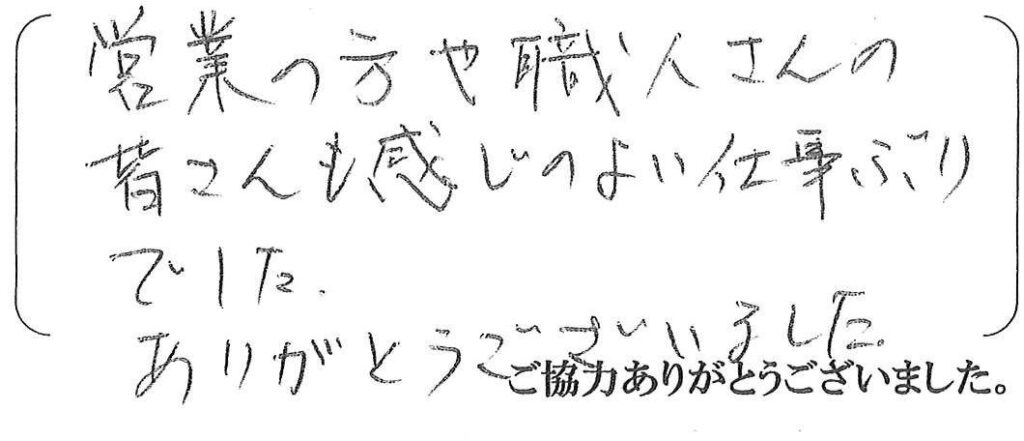 営業の方や職人さんの
皆さんも感じのよい仕事ぶり
でした.
ありがとうございました.
ご協力ありがとうございました。